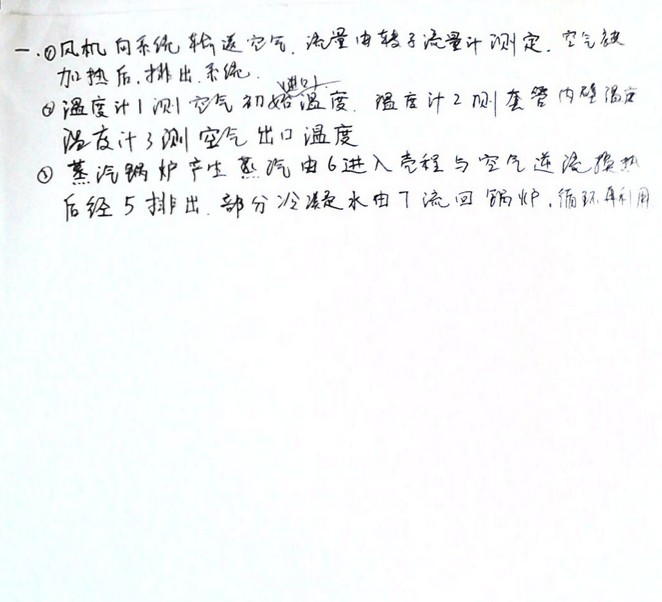 一.①风机向系统输送空气.流量由转子流量计测定.空气被
加热后.排出系统.
进口
②温度计1测空气初始温度.温度计2测套管内壁温度
温度计3测空气出口温度
③蒸汽锅炉产生蒸汽由6进入壳程与空气逆流换热
后经5排出.部分冷凝水由7流回锅炉.循环再利用